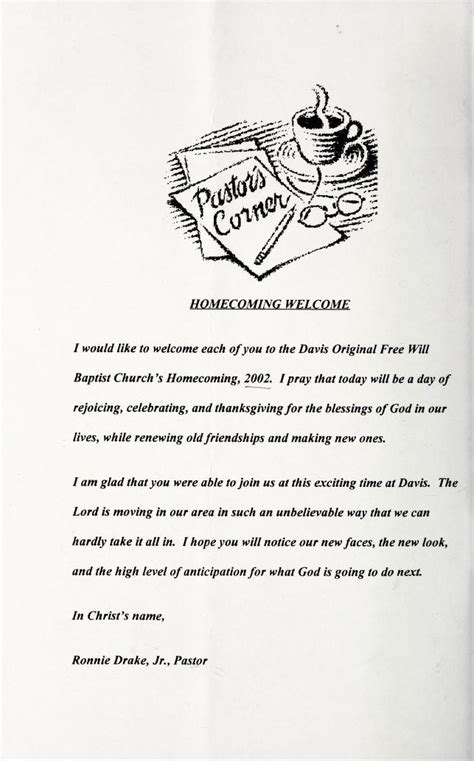 Pastor's
Corner
HOMECOMING WELCOME
I would like to welcome each of you to the Davis Original Free Will
Baptist Church's Homecoming, 2002. I pray that today will be a day of
rejoicing, celebrating, and thanksgiving for the blessings of God in our
lives, while renewing old friendships and making new ones.
I am glad that you were able to join us at this exciting time at Davis. The
Lord is moving in our area in such an unbelievable way that we can
hardly take it all in. I hope you will notice our new faces, the new look,
and the high level of anticipation for what God is going to do next.
In Christ's name,
Ronnie Drake, Jr., Pastor